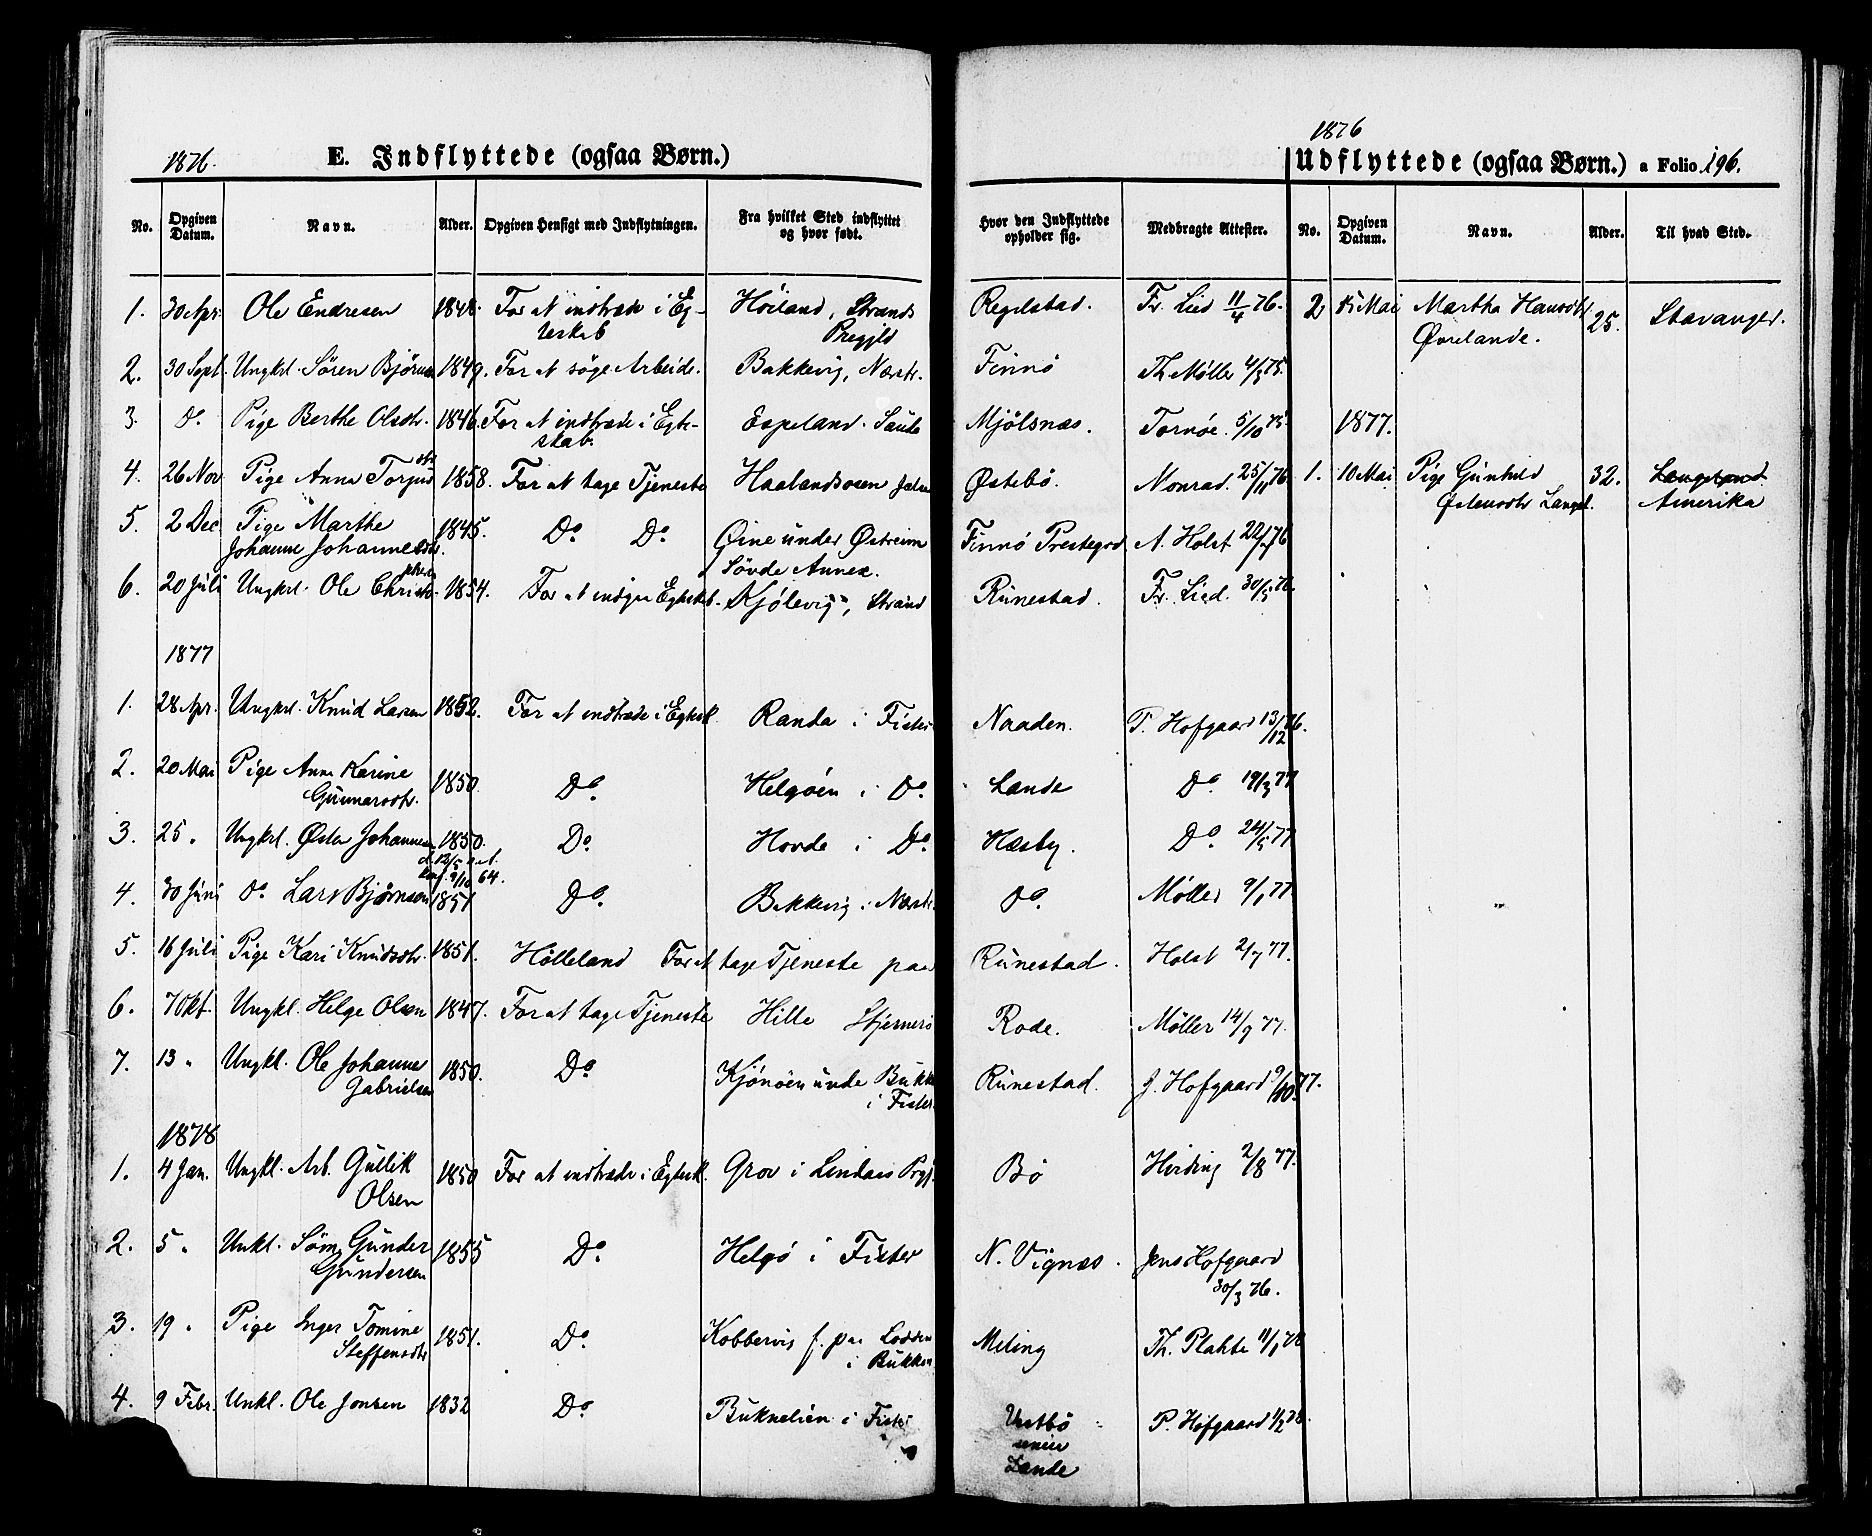 1876. E. Indflyttede (ogsaa Børn.)
1876
Udflyttede (ogsaa Børn.) a Folio 196.
No. Opgiven Datum. Navn. Alder. Opgiven Hensigt med Indflytningen. Fra hvilket Sted indflyttet og hvor født. Hvor den Indflyttede opholder sig. Medbragte Attester. No. Opgiven Datum. Navn. Alder. Til hvad Sted.
1. 30 Apr. Ole Endresen 1848. For at indtræde i Eg- Høiland, Strands Regelstad. Fr. Lied 11/4 76. 2 15 Mai Martha Hansdtr 25. Stavanger.
teskab Pregjld Øvrelande.
2. 30 Sept. Ungkrl. Sören Björns 1849. For at söge Arbeide. Bakkevig, Nærstr. Finnö Th Møller 4/3 75.
3. Do. Pige Berthe Olsdtr. 1846. For at indtræde i Egte- Espeland. Saude Mjölsnæs. Tornöe. 5/10 75 1877.
skab.
4. 26 Nov Pige Anna Torjusdtr 1858. For at tage Tjeneste Haalandsosen Jelse Østebö. Monrad. 25/11 76 1. 10 Mai Pige Gunhild 32. Langeland
Østensdtr Langel. Amerika
5. 2 Dec Pige Marthe 1845. Do Do Øine under Østreim Finnö Prestegrd A. Holst 22/ 76
Johanne Johannesdtr. Sövde Annex.
6. 20 Juli Ungkrl. Ole Christophersen 1854. For at indgaa Egteskb. Kjölevig, Strand Runestad. Fr. Lied. 30/5 76.
1877
1. 28 Apr. Ungkrl. Knud Larsen 1852. For at indtræde i Egtesk. Randa i Fister Naaden. P. Hofgaard 13/12 76.
2. 20 Mai Pige Anna Karine 1850. Do. Helgöen i Do. Lande Do 19/3 77
Gunnarsdtr.
3. 25 " Ungkrl. Østen Johannesen 1850. Do. Hovde i Do. Hæsby. Do 24/5 77
64.
4. 30 Juni Do Lars Bjørnson 1851 Do. Bakkevig i Nærstr. Do. Møller 9/1 77
5. 16 Juli Pige Kari Knudsdtr. 1851. Hölleland For at tage Tjeneste paa Runestad. Holst 2/7 77.
6. 7 Okt. Ungkl. Helge Olsen 1847. For at tage Tjeneste Hille Stjernerö Rode. Møller 14/7 77.
7. 13 " Ungkl. Ole Johannes 1850. Do. Kjönöen unde Bukken Runestad. J. Hofgaard 9/10 77.
Gabrielsen i Fister.
1878
1. 4 Jan. Ungkl. Arb. Gullik 1850 For at indtræde i Egtesk. Grov i Lindaas Prgj. Bö Hviding 2/8 77.
Olsen
2. 5 " Unkl. Gunder 1855 Do. Helgö i Fister N. Vignæs. Jens Hofgaard
Gundersen 30/3 76.
3. 19 " Pige Inger Tomine 1851. Do. Kobbervig f. paa Lodden Meling Th. Plahte 11/1 78
Steffensdtr i Bukken
4. 9 Febr. Unkl. Ole Jonsen 1832 Do. Buknelien i Fister Vestbö P. Hofgaard 1/2 78.
unde
Lande